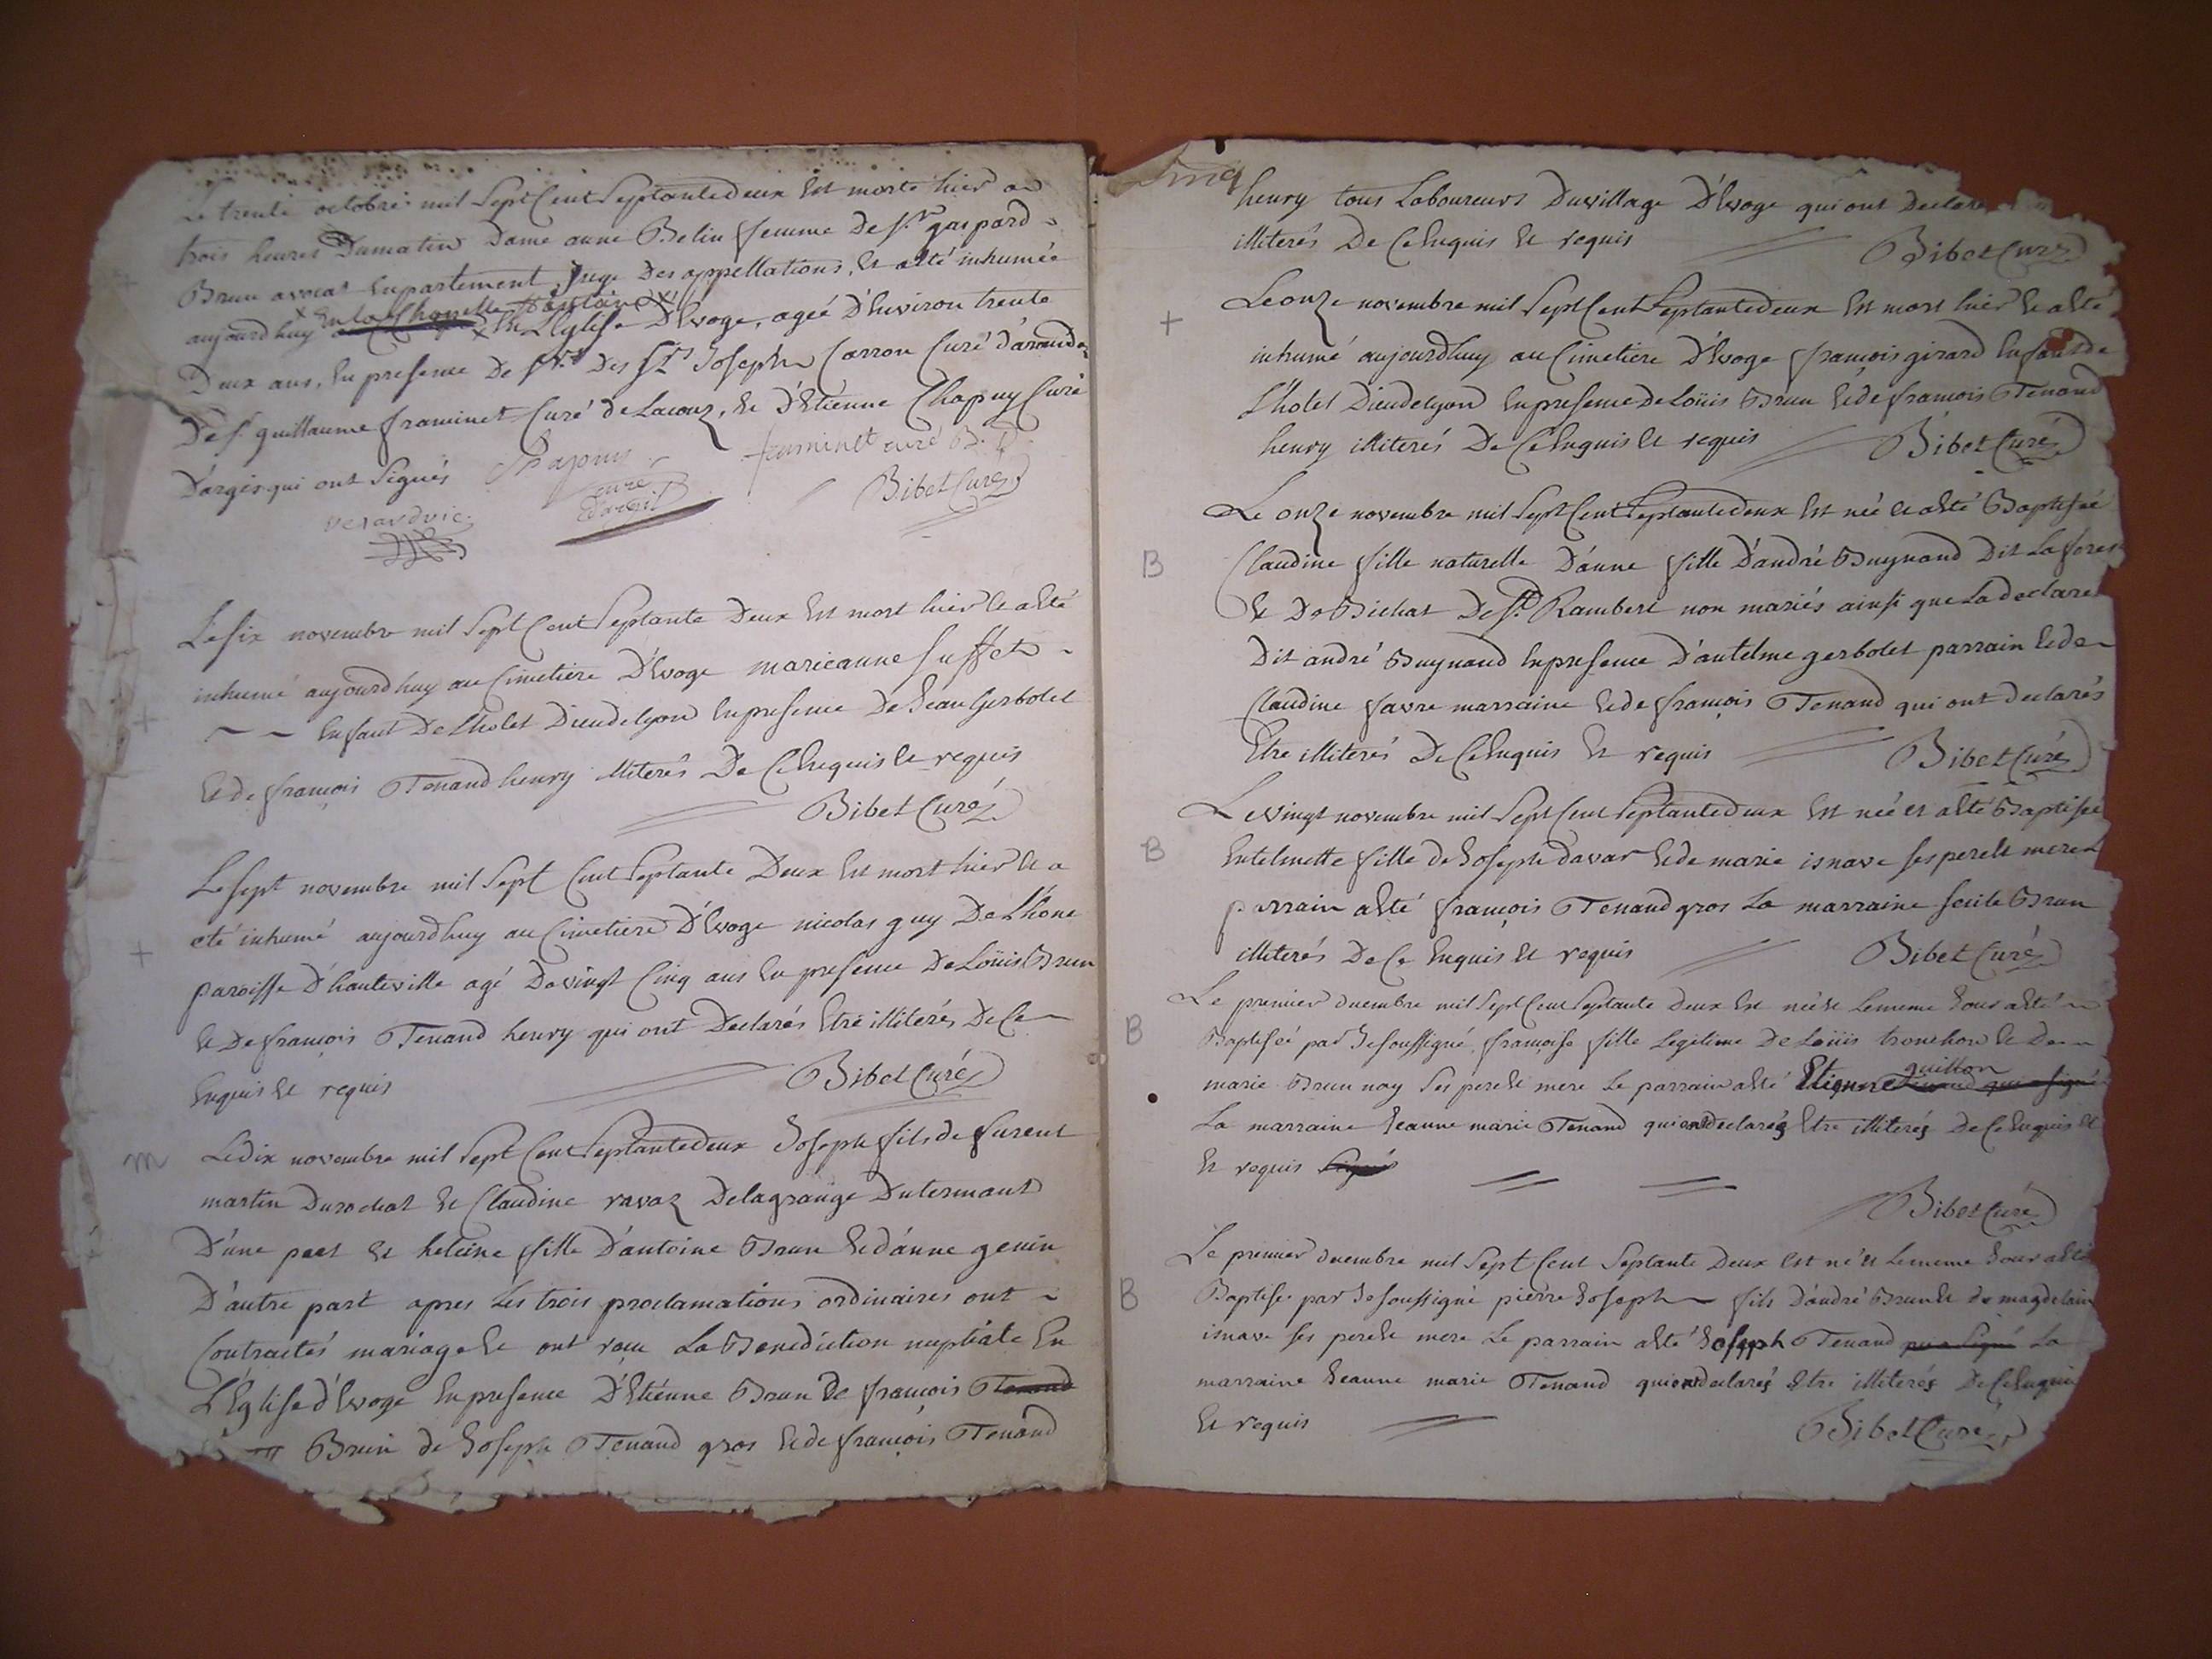 Le trente octobre mil Sept Cent Septante deux Est morte hier a
trois heures Dumatin Dame anne Belin femme De sr. gaspard
Brun avocat Enparlement, Juge Des appellations, Et aEté inhumée
x En la Chapelle x
aujourdhuy x En LEglise D'Evoge, ageé D'Environ trente
Deux ans, En presence De Des Joseph Carron Curé d'arandaz
De sr. guillaume framinet Curé de Lacouz, Et D'Etienne Chapuy Curé
D'argis qui ont Signés
Chapuy curé framinet curé
Bibet Curé
Le six novembre mil Sept Cent Septante Deux Est mort hier Et aEté
inhumé aujourdhuy au Cimetiere D'Evoge marieanne suffet
Enfant De Lhotel Dieudelyon En presence De Jean Gerbolet
Et de françois Tenand henry illiterés De Ce Enquis Et requis
Bibet Curé
Le sept novembre mil Sept Cent Septante Deux Est mort hier Et a
eté inhumé aujourdhuy au Cimetiere D'Evoge nicolas guy De Lhone
paroisse D'hauteville agé De vingt Cinq ans En presence De Loüis Brun
Et De françois Tenand henry qui ont Declarés Etre illiterés De Ce
Enquis Et requis Bibet Curé
m
Le dix novembre mil Sept Cent Septantedeux Joseph fils de furent
martin Durochat Et Claudine ravaz Delagrange Dutermant
D'une part Et heleine fille D'antoine Brun Et d'anne genin
D'autre part apres Les trois proclamations ordinaires ont
Contractés mariage Et ont reçu La Benediction nuptiale En
L'Eglise d'Evoge En presence D'Etienne Brun De françois Tenand
Brun de Joseph Tenand gros Et de françois Tenand
henry tous Laboureurs Duvillage D'Evoge qui ont Declaré
illiterés De Ce Enquis Et requis Bibet Curé
Le onze novembre mil Sept Cent Septantedeux Est mort hier Et aEté
inhumé aujourdhuy au Cimetiere D'Evoge françois girard Enfant de
L'hotel Dieudelyon En presence De Loüis Brun Et de françois Tenand
henry illiterés De Ce Enquis Et requis Bibet Curé
Le onze novembre mil Sept Cent Septantedeux Est neé Et aEté Baptiseé
B
Claudine fille naturelle D'anne fille D'andré Buynand Dit La forest
Et De Bichat De St. Rambert non mariés ainsi que La declaré
Dit andré Buynand En presence D'antelme gerbolet parrain Et de
Claudine favre marraine Et de françois Tenand qui ont declarés
Etre illiterés De Ce Enquis Et requis Bibet Curé
Le vingt novembre mil Sept Cent Septantedeux Est neé et aEté Baptisée
B
Entelmette fille de Joseph davar Et de marie isnave ses pere Et mere Le
parrain aEté françois Tenand gros La marraine secile Brun
illiterés De Ce Enquis Et requis Bibet Curé
Le premier decembre mil Sept Cent Septante Deux Est neé Et Lememe Jour aEté
B
Baptiseé par Jesoussigné françoise fille Legitime De Loüis tronchon Et De
guillon
marie Brun noy ses pere Et mere Le parrain aEté Etienne Tenand qui a signé
La marraine Jeanne marie Tenand qui ont declarés Etre illiterés De Ce Enquis Et
Et requis Signé
Bibet Curé
Le premier decembre mil Sept Cent Septante Deux Est né Et Lememe Jour aEté
B
Baptisé par Jesoussigné pierre Joseph fils D'andré Brun Et de magdelaine
isnave ses pere Et mere Le parrain aEté Joseph Tenand La
marraine Jeanne marie Tenand qui ont declarés Etre illiterés De Ce Enquis
Et requis Bibet Curé